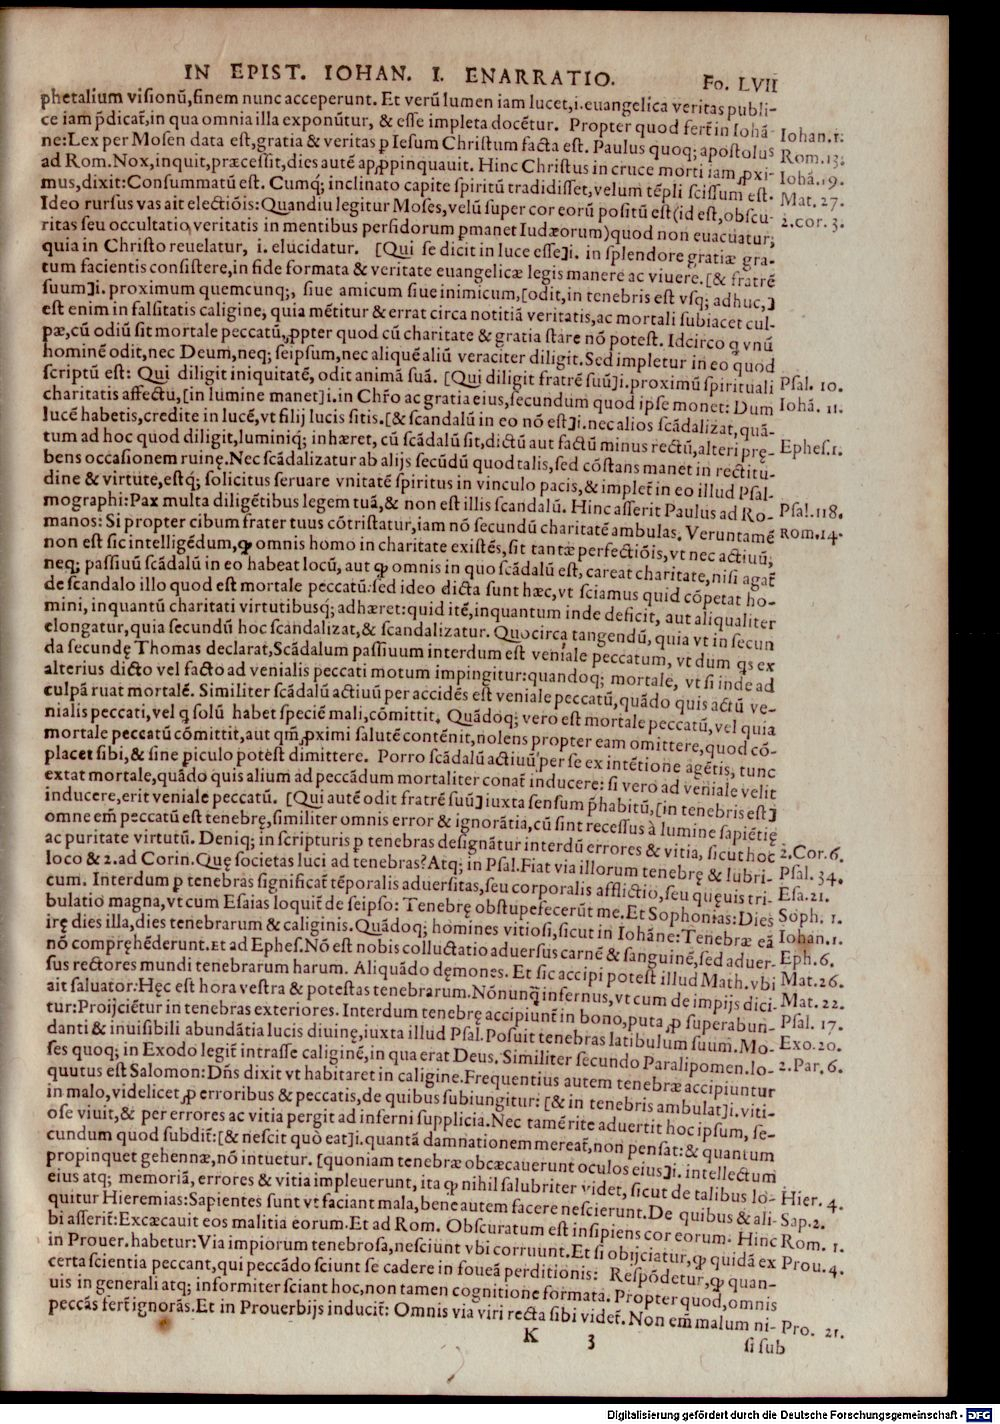 IN EPIST. IOHAN. I. ENARRATIO. Fo. LVII
phetalium visionũ,finem nunc acceperunt. Et verũ lumen iam lucet,i.euangelica veritas publi-
ce iam p̃dicat̃,in qua omnia illa exponũtur, & esse impleta docẽtur. Propter quod fert̃ in Iohã- Iohan.1.
ne:Lex per Mosen data est,gratia & veritas ꝑ Iesum Christum facta est. Paulus quoq; apostolus Rom.13.
ad Rom.Nox,inquit,præcessit,dies autẽ apꝓpinquauit. Hinc Christus in cruce morti iam ꝓxi- Iohã.19.
mus,dixit:Consummatũ est. Cumq́; inclinato capite spiritũ tradidisset,velum tẽpli scissum est. Mat. 27.
Ideo rursus vas ait electiõis:Quandiu legitur Moses,velũ super cor eorũ positũ est(id est,obscu- 2.cor. 3.
ritas seu occultatio veritatis in mentibus perfidorum ꝑmanet Iudæorum)quod non euacuatur,
quia in Christo reuelatur, i. elucidatur. [Qui se dicit in luce esse]i. in splendore gratiæ gra-
tum facientis consistere,in fide formata & veritate euangelicæ legis manere ac viuere.[& fratrẽ
suum]i. proximum quemcunq;, siue amicum siue inimicum,[odit,in tenebris est vsq; adhuc,]
est enim in falsitatis caligine, quia mẽtitur & errat circa notitiã veritatis,ac mortali subiacet cul-
pæ,cũ odiũ sit mortale peccatũ,ꝓpter quod cũ charitate & gratia stare nõ potest. Idcirco q vnũ
hominẽ odit,nec Deum,neq; seipsum,nec aliquẽ aliũ veraciter diligit.Sed impletur in eo quod
scriptũ est: Qui diligit iniquitatẽ, odit animã suã. [Qui diligit fratrẽ suũ]i.proximũ spirituali Psal. 10.
charitatis affectu,[in lumine manet]i.in Chr̃o ac gratia eius,secundum quod ipse monet: Dum Iohã. 11.
lucẽ habetis,credite in lucẽ,vt filij lucis sitis.[& scandalũ in eo nõ est]i.nec alios scãdalizat,quã-
tum ad hoc quod diligit,luminiq́; inhæret, cũ scãdalũ sit,dictũ aut factũ minus rectũ,alteri prę- Ephes.1.
bens occasionem ruinę.Nec scãdalizatur ab alijs secũdũ quod talis,sed cõstans manet in rectitu-
dine & virtute,estq́; solicitus seruare vnitatẽ spiritus in vinculo pacis,& implet̃ in eo illud Psal-
mographi:Pax multa diligẽtibus legem tuã,& non est illis scandalũ. Hinc asserit Paulus ad Ro- Psal.118.
manos: Si propter cibum frater tuus cõtristatur,iam nõ secundũ charitatẽ ambulas. Veruntamẽ Rom.14.
non est sic intelligẽdum,ꝙ omnis homo in charitate existẽs,sit tantæ perfectiõis,vt nec actiuũ,
neq; passiuũ scãdalũ in eo habeat locũ, aut ꝙ omnis in quo scãdalũ est, careat charitate,nisi agat̃
de scandalo illo quod est mortale peccatũ:sed ideo dicta sunt hæc,vt sciamus quid cõpetat ho-
mini, inquantũ charitati virtutibusq́; adhæret:quid itẽ,inquantum inde deficit, aut aliqualiter
elongatur,quia secundũ hoc scandalizat,& scandalizatur. Quocirca tangendũ, quia vt in secun
da secundę Thomas declarat,Scãdalum passiuum interdum est veniale peccatum, vt dum qs ex
alterius dicto vel facto ad venialis peccati motum impingitur:quandoq; mortale, vt si inde ad
culpã ruat mortalẽ. Similiter scãdalũ actiuũ per accidẽs est veniale peccatũ,quãdo quis actũ ve-
nialis peccati,vel q solũ habet speciẽ mali,cõmittit. Quãdoq; vero est mortale peccatũ,vel quia
mortale peccatũ cõmittit,aut qm̃ ꝓximi salutẽ contẽnit,nolens propter eam omittere,quod cõ-
placet sibi,& sine ꝑiculo potest dimittere. Porro scãdalũ actiuũ per se ex intẽtione agẽtis, tunc
extat mortale,quãdo quis alium ad peccãdum mortaliter conat̃ inducere: si vero ad veniale velit
inducere,erit veniale peccatũ. [Qui autẽ odit fratrẽ suũ]iuxta sensum p̃habitũ,[in tenebris est]
omne em̃ peccatũ est tenebrę,similiter omnis error & ignorãtia,cũ sint recessus à lumine sapiẽtię
ac puritate virtutũ. Deniq; in scripturis ꝑ tenebras designãtur interdũ errores & vitia, sicut hoc 2.Cor.6.
loco & 2.ad Corin.Quę societas luci ad tenebras?Atq; in Psal.Fiat via illorum tenebrę & lubri- Psal. 34.
cum. Interdum ꝑ tenebras significat̃ tẽporalis aduersitas,seu corporalis afflictio,seu quęuis tri- Esa.21.
bulatio magna,vt cum Esaias loquit̃ de seipso: Tenebrę obstupefecerũt me.Et Sophonias:Dies Soph. 1.
irę dies illa,dies tenebrarum & caliginis. Quãdoq; homines vitiosi,sicut in Iohãne:Tenebræ eã Iohan.1.
nõ compręhẽderunt.Et ad Ephes.Nõ est nobis colluctatio aduersus carnẽ & sanguinẽ,sed aduer- Eph.6.
sus rectores mundi tenebrarum harum. Aliquãdo dęmones. Et sic accipi potest illud Math.vbi Mat.26.
ait saluator:Hęc est hora vestra & potestas tenebrarum.Nõnunq̃ infernus,vt cum de impijs dici- Mat. 22.
tur:Proijciẽtur in tenebras exteriores. Interdum tenebrę accipiunt̃ in bono,puta ꝓ superabun- Psal. 17.
danti & inuisibili abundãtia lucis diuinę,iuxta illud Psal.Posuit tenebras latibulum suum.Mo- Exo.20.
ses quoq; in Exodo legit̃ intrasse caliginẽ,in qua erat Deus. Similiter secundo Paralipomen.lo- 2.Par. 6.
quutus est Salomon:Dñs dixit vt habitaret in caligine.Frequentius autem tenebræ accipiuntur
in malo,videlicet ꝓ erroribus & peccatis,de quibus subiungitur: [& in tenebris ambulat]i.viti-
ose viuit,& per errores ac vitia pergit ad inferni supplicia.Nec tamẽ rite aduertit hoc ipsum, se-
cundum quod subdit̃:[& nescit quò eat]i.quantã damnationem mereat̃,non pensat:& quantum
propinquet gehennæ,nõ intuetur. [quoniam tenebræ obcæcauerunt oculos eius]i. intellectum
eius atq; memoriã, errores & vitia impleuerunt, ita ꝙ nihil salubriter videt, sicut de talibus lo- Hier. 4.
quitur Hieremias:Sapientes sunt vt faciant mala,bene autem facere nescierunt.De quibus & ali- Sap.2.
bi asserit̃:Excæcauit eos malitia eorum.Et ad Rom. Obscuratum est insipiens cor eorum. Hinc Rom. 1.
in Prouer.habetur:Via impiorum tenebrosa,nesciunt vbi corruunt.Et si obijciatur,ꝙ quidã ex Prou.4.
certa scientia peccant,qui peccãdo sciunt se cadere in foueã perditionis: Respõdetur,ꝙ quan-
uis in generali atq; informiter sciant hoc,non tamen cognitione formata. Propter quod,omnis
peccãs fert̃ ignorãs.Et in Prouerbijs inducit̃: Omnis via viri recta sibi videt̃. Non em̃ malum ni- Pro. 21.
K 3 si sub
Digitalisierung gefördert durch die Deutsche Forschungsgemeinschaft - DFG